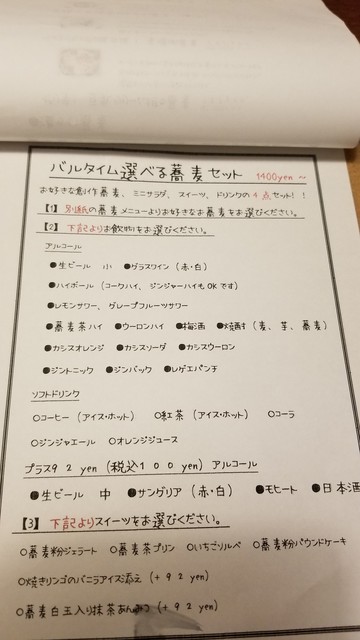 バルタイム選べる蕎麦セット 1400yen ～
お好きな創作蕎麦、ミニサラダ、スイーツ、ドリンクの4点セット！！
【1】別紙の蕎麦メニューよりお好きなお蕎麦をお選びください。
【2】下記よりお飲物をお選びください。
アルコール
●生ビール 小 ●グラスワイン（赤・白）
●ハイボール（コークハイ、ジンジャーハイもOKです）
●レモンサワー、グレープフルーツサワー
●蕎麦茶ハイ ●ウーロンハイ ●梅酒 ●焼酎（麦、芋、蕎麦）
●カシスオレンジ ●カシスソーダ ●カシスウーロン
●ジントニック ●ジンバック ●レゲエパンチ
ソフトドリンク
○コーヒー（アイス・ホット） ○紅茶（アイス・ホット） ○コーラ
○ジンジャエール ○オレンジジュース
プラス92yen（税込100yen）アルコール
●生ビール 中 ●サングリア（赤・白） ●モヒート ●日本酒
【3】下記よりスイーツをお選びください。
○蕎麦粉ジェラート ○蕎麦茶プリン ○いちごソルベ ○蕎麦粉パウンドケーキ
○焼きリンゴのバニラアイス添え（+92yen）
○蕎麦白玉入り抹茶あんみつ（+92yen）